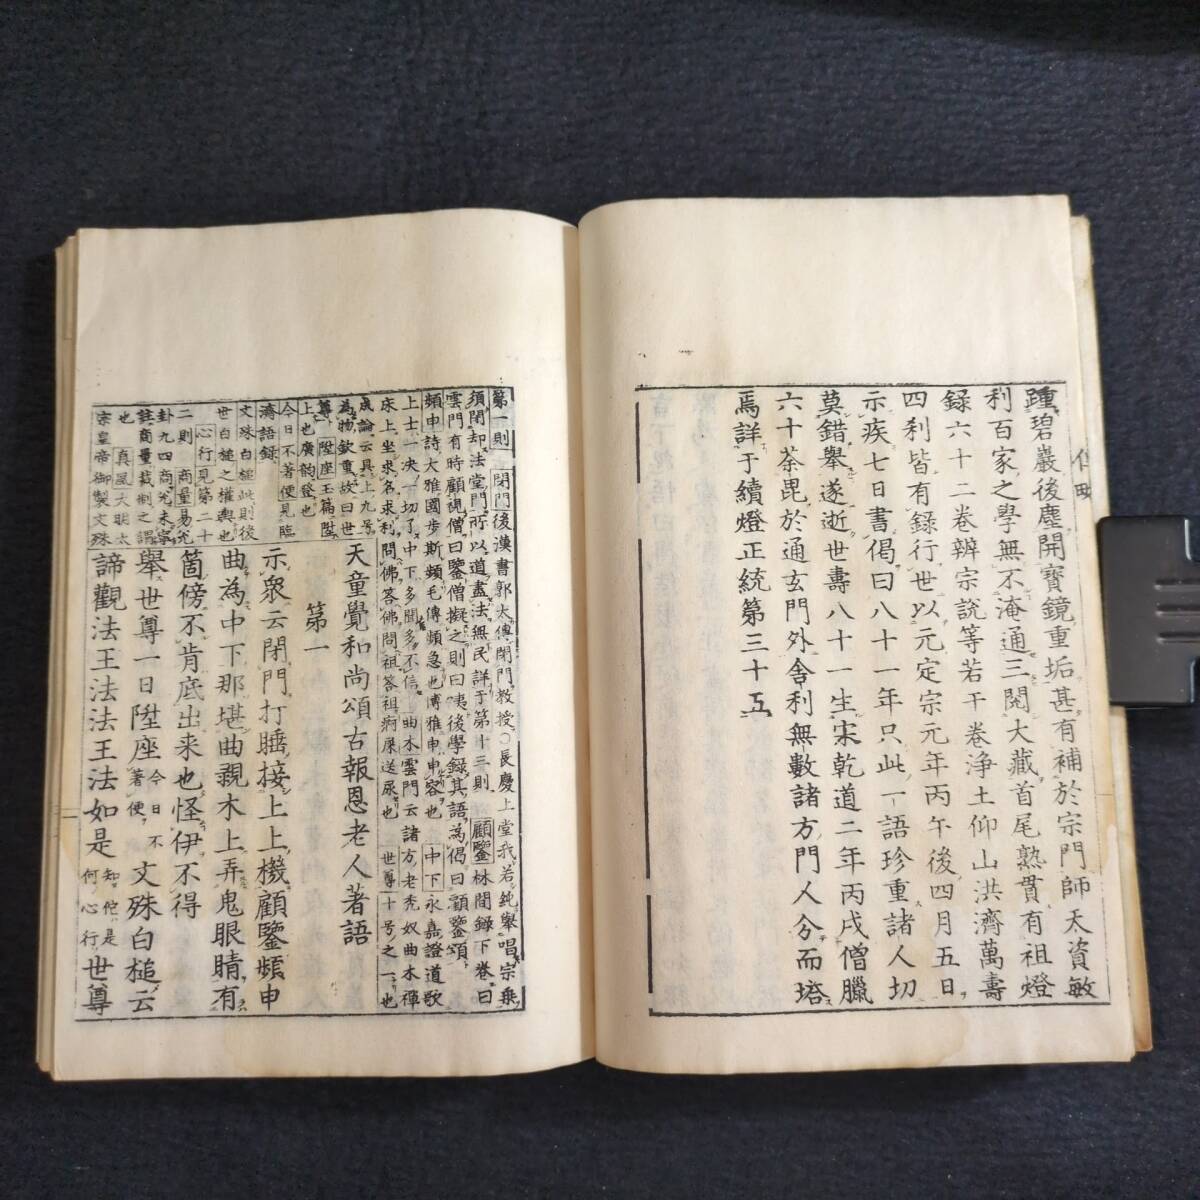 踵碧巖後塵開寶鏡重垢甚有補於宗門師天資敏
利百家之學無不淹通三閱大藏首尾熟貫有祖燈
錄六十二卷辨宗說等若干卷浄土仰山洪濟萬壽
四利皆有録行世以元定宗元年丙午後四月五日
示疾七日書偈曰八十一年只此一語珍重諸人切
莫錯舉遂逝世壽八十一生宋乾道二年丙戌僧臘
六十荼毘於通玄門外舎利無數諸方門人分而塔
焉詳于續燈正統第三十五
第一則 閉門後漢書郭太傳閉門教授○長慶上堂我若純舉唱宗乗
須閉却法堂門所以道盡法無民詳于第十三則 顧鑒林間録下卷曰
雲門有時顧視僧曰鑒僧擬之則曰咦後學録其語為偈曰顧鑒頌
頻申詩大雅國步斯頻毛傳頻急也博雅申申容也 中下永嘉證道歌
上士一决一切了中下多聞多不信 曲木雲門云諸方老禿奴曲木禪
床上坐求名求利問佛答佛問祖答祖痾屎送尿也 世尊十号之一也
成論云具上九号
為物欽重故曰世
尊 陞座玉篇陞
上也廣韵登也
今日不著便見臨
濟語録
文殊白槌此則後
世白槌之權輿也
心行見第二十
二則 商量易兊
卦九四商兊未寧
註商量裁制之謂
也 真風大明太
宗皇帝御製文殊
天童覺和尚頌古報恩老人著語
第一
示衆云閉門打睡接上上機顧鑒頻申
曲為中下那堪曲親木上弄鬼眼睛有
箇傍不肯底出来也怪伊不得
舉世尊一日陞座今日不著便文殊白槌云
諦觀法王法法王法如是知佗是何心行世尊